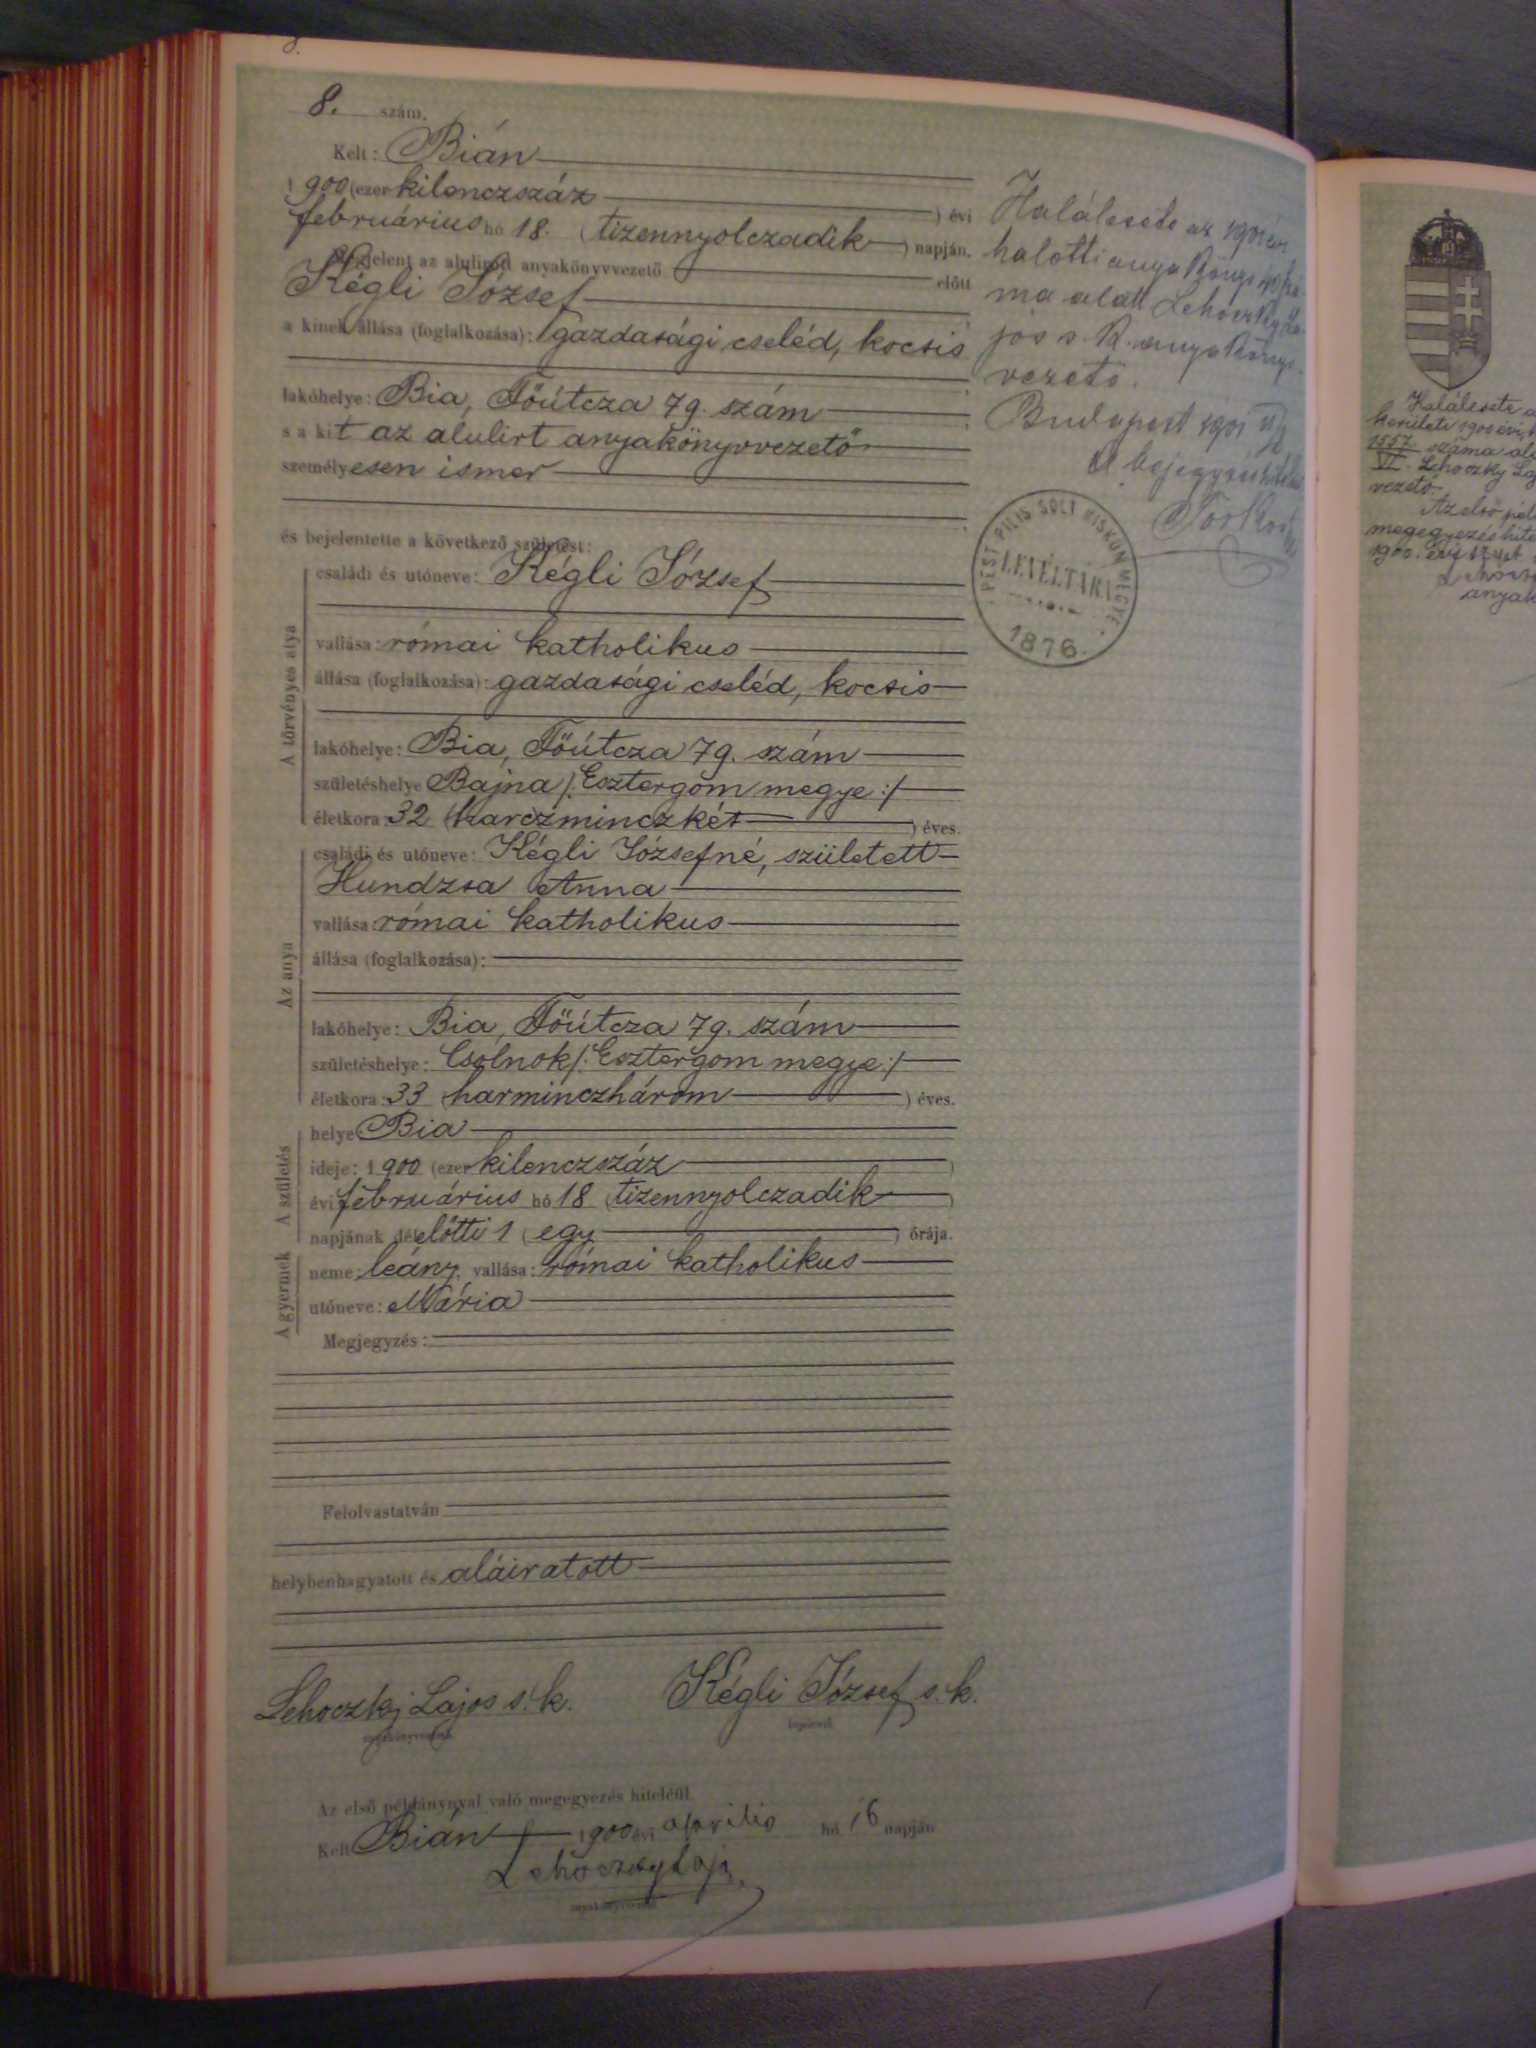 8. szám.
Kelt: Bián
1900 (ezer kilenczszáz ) évi
februárius hó 18. (tizennyolczadik ) napján.
Megjelent az alulirott anyakönyvvezető előtt
Kégli József
a kinek állása (foglalkozása): gazdasági cseléd, kocsis
lakóhelye: Bia, Főútcza 79. szám
s a kit az alulirt anyakönyvvezető
személyesen ismer
és bejelentette a következő születést:
A törvényes atya
családi és utóneve: Kégli József
vallása: római katholikus
állása (foglalkozása): gazdasági cseléd, kocsis
lakóhelye: Bia, Főútcza 79. szám
születéshelye Bajna /: Esztergom megye :/
életkora: 32 (harczminczkét ) éves.
Az anya
családi és utóneve: Kégli Józsefné, született
Hundzsa Anna
vallása: római katholikus
állása (foglalkozása):
lakóhelye: Bia, Főútcza 79. szám
születéshelye: Csolnok /: Esztergom megye :/
életkora: 33 (harminczhárom ) éves.
A születés
helye: Bia
ideje: 1900 (ezer kilenczszáz )
évi februárius hó 18 (tizennyolczadik )
napjának délelőtti 1 (egy ) órája.
A gyermek
neme: leány, vallása: római katholikus
utóneve: Mária
Megjegyzés:
Felolvastatván
helybenhagyatott és aláiratott
Lehoczky Lajos s. k. Kégli József s. k.
anyakönyvvezető bejelentő
Az első példánynyal való megegyezés hiteléül
Kelt Bián 1900 évi aprilis hó 16 napján
Lehoczky Lajos
anyakönyvvezető
Halálesete az 1901 évi
halotti anyakönyv
ma alatt Lehoczky La-
jos s. k. anyakönyv-
vezető.
Budapest 1901
A bejegyzés hiteléül
PEST PILIS SOLT KISKUN MEGYE
LEVÉLTÁRA
1876.
Halálesete a
kerületi 1900 évi
1557. száma ala
VI. Lehoczky Laj
vezető.
Az első pél
megegyezés hite
1900. évi
Lehocz
anyak